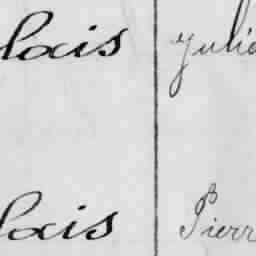 lais Julie
lais Pierr